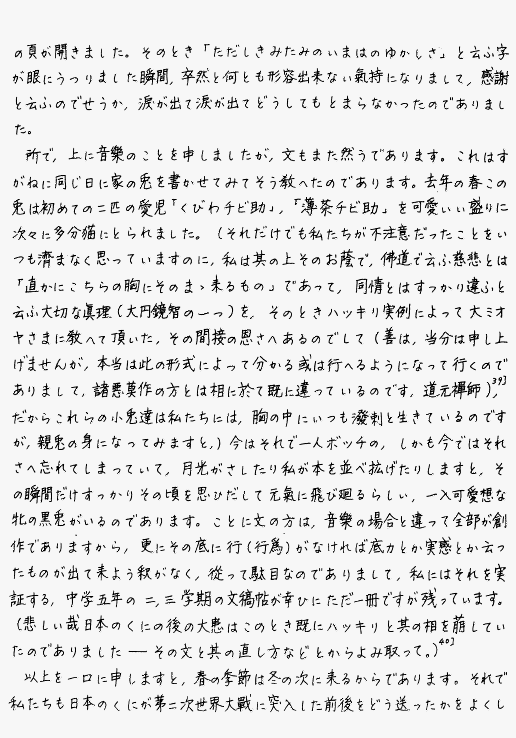 の頁が開きました。そのとき「ただしきみたみのいまはのゆかしさ」と云ふ字
が眼にうつりました瞬間，卒然と何とも形容出来ない氣持になりまして，感謝
と云ふのでせうか，涙が出て涙が出てどうしてもとまらなかったのでありまし
た。
所で，上に音樂のことを申しましたが，文もまた然うであります。これはす
がねに同じ日に家の兎を書かせてみてそう敎へたのであります。去年の春この
兎は初めての二匹の愛児「くびわチビ助」，「薄茶チビ助」を可愛いい盛りに
次々に多分猫にとられました。（それだけでも私たちが不注意だったことをい
つも濟まなく思っていますのに，私は其の上そのお蔭で，佛道で云ふ慈悲とは
「直かにこちらの胸にそのまゝ来るもの」であって，同情とはすっかり違ふと
云ふ大切な眞理（大円鏡智の一つ）を，そのときハッキリ実例によって大ミオ
ヤさまに敎へて頂いた，その間接の恩さへあるのでして（善は，当分は申し上
げませんが，本当は此の形式によって分かる或は行へるようになって行くので
ありまして，諸悪莫作の方とは相に於て既に違っているのです，道元禪師），39)
だからこれらの小兎達は私たちには，胸の中にいつも溌剌と生きているのです
が，親兎の身になってみますと，）今はそれで一人ボッチの，しかも今ではそれ
さへ忘れてしまっていて，月光がさしたり私が本を並べ拡げたりしますと，そ
の瞬間だけすっかりその頃を思ひだして元氣に飛び廻るらしい，一入可愛想な
牝の黒兎がいるのであります。ことに文の方は，音樂の場合と違って全部が創
作でありますから，更にその底に行（行爲）がなければ底力とか実感とか云っ
たものが出て来よう釈がなく，從って駄目なのでありまして，私にはそれを実
証する，中学五年の二，三学期の文稿帖が幸ひにただ一冊ですが残っています。
（悲しい哉日本のくにの後の大患はこのとき既にハッキリと其の相を萠してい
たのでありました — その文と其の直し方などとからよみ取って。）40)
以上を一口に申しますと，春の季節は冬の次に来るからであります。それで
私たちも日本のくにが第二次世界大戰に突入した前後をどう送ったかをよくし